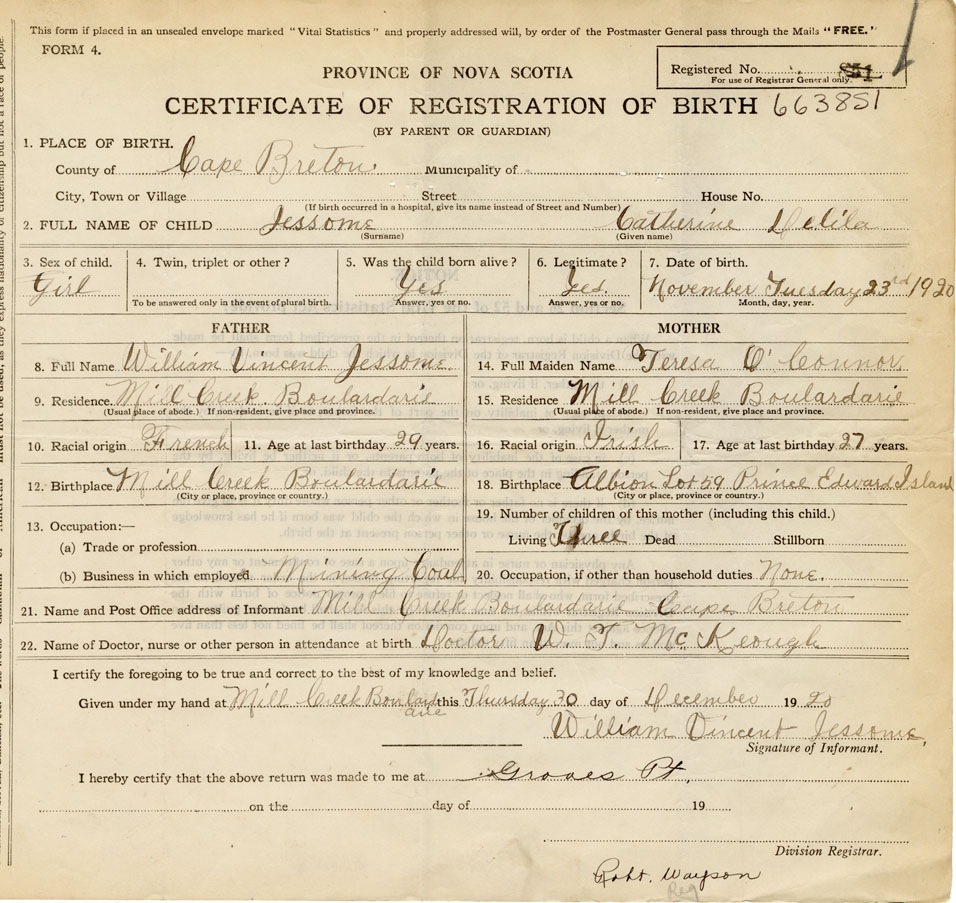 This form if placed in an unsealed envelope marked "Vital Statistics" and properly addressed will, by order of the Postmaster General pass through the Mails "FREE."
FORM 4.
Registered No.
For use of Registrar General only.
PROVINCE OF NOVA SCOTIA
CERTIFICATE OF REGISTRATION OF BIRTH 663851
(BY PARENT OR GUARDIAN)
1. PLACE OF BIRTH.
County of Cape Breton Municipality of
City, Town or Village Street House No.
(If birth occurred in a hospital, give its name instead of Street and Number)
2. FULL NAME OF CHILD Jessome Catherine Delila
(Surname) (Given name)
3. Sex of child. 4. Twin, triplet or other? 5. Was the child born alive? 6. Legitimate? 7. Date of birth.
Girl Yes Yes. November Tuesday 23rd 1920
To be answered only in the event of plural birth. Answer, yes or no. Answer, yes or no. Month, day, year.
FATHER MOTHER
8. Full Name William Vincent Jessome. 14. Full Maiden Name Teresa O'Connor
9. Residence. Mill Creek Boulardarie 15. Residence Mill Creek Boulardarie
(Usual place of abode.) If non-resident, give place and province. (Usual place of abode.) If non-resident, give place and province.
10. Racial origin French 11. Age at last birthday 29 years. 16. Racial origin Irish 17. Age at last birthday 27 years.
12. Birthplace Mill Creek Boulardarie 18. Birthplace Albion Lot 59 Prince Edward Island
(City or place, province or country.) (City or place, province or country.)
13. Occupation:— 19. Number of children of this mother (including this child.)
(a) Trade or profession Living Three Dead Stillborn
(b) Business in which employed Mining Coal 20. Occupation, if other than household duties None.
21. Name and Post Office address of Informant Mill Creek Boulardarie Cape Breton
22. Name of Doctor, nurse or other person in attendance at birth Doctor W. T. McKeough
I certify the foregoing to be true and correct to the best of my knowledge and belief.
Given under my hand at Mill Creek Boulardarie this Thursday 30 day of December 1920
William Vincent Jessome,
Signature of Informant.
I hereby certify that the above return was made to me at Groves Pt.
on the day of 19
Division Registrar.
Robt. Wayson
Reg